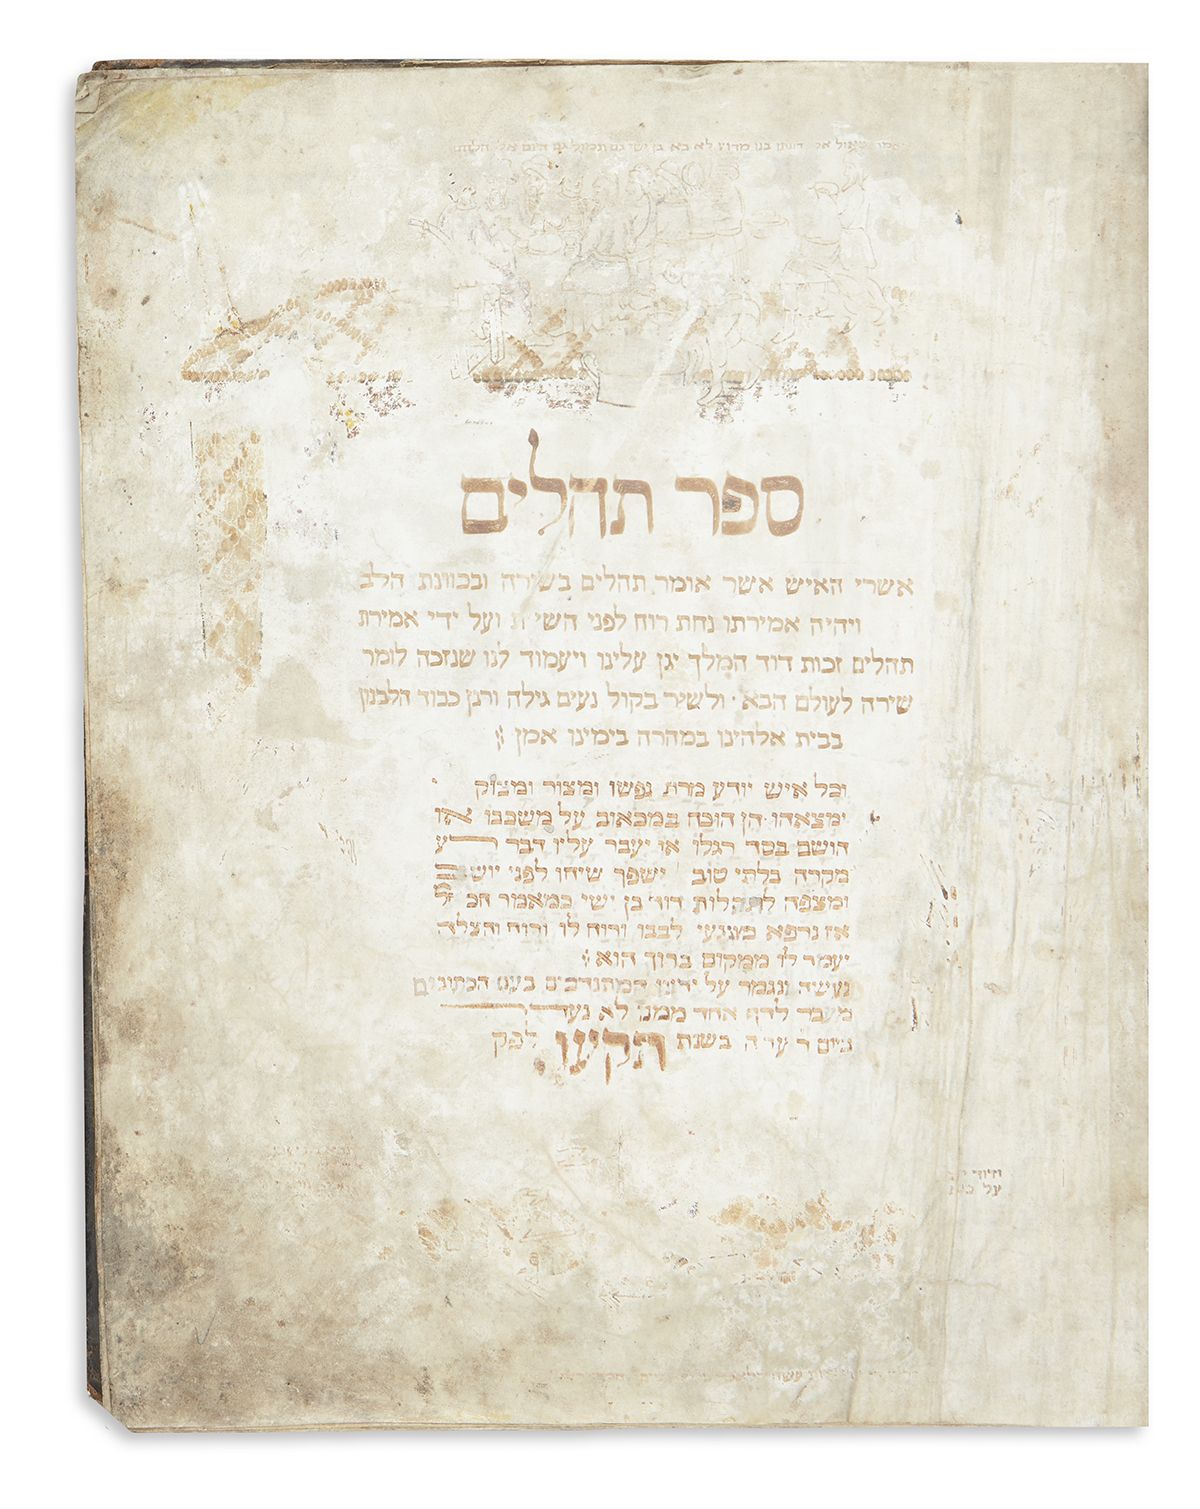 לא בא בן ישי גם תמול גם היום אל הלחם
ספר תהלים
אשרי האיש אשר אומר תהלים בשירה ובכוונת הלב
ויהיה אמירתו נחת רוח לפני השי״ת ועל ידי אמירת
תהלים זכות דוד המלך יגן עלינו ויעמוד לנו שנזכה לומר
שירה לעולם הבא · ולשיר בקול נעים גילה ורנן כבוד הלבנון
בבית אלהינו במהרה בימינו אמן
וכל איש יודע מרת נפשו ומצור ומצוק
ימצאהו הן הוכה במכאוב על משכבו או
הושם בסד רגלו או יעבר עליו דבר רע
מקרה בלתי טוב ישפך שיחו לפני יושב
ומצפה לתהלות דוד בן ישי במאמר חכ״ל
אז נרפא לבבו ורוח לו ורוח והצלה
יעמד לו ממקום ברוך הוא
נעשה ונגמר על ידי המתנדבים בעם הכתובים
מעבר לדף אחד ממנו לא נעדר
ביום בשנת תקעו לפק
על